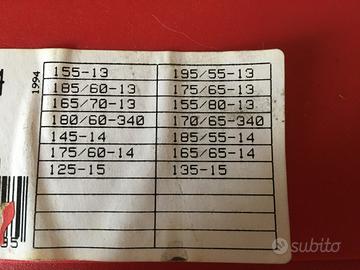 1994
155-13 195/55-13
185/60-13 175/65-13
165/70-13 155/80-13
180/60-340 170/65-340
145-14 185/55-14
175/60-14 165/65-14
125-15 135-15
subito